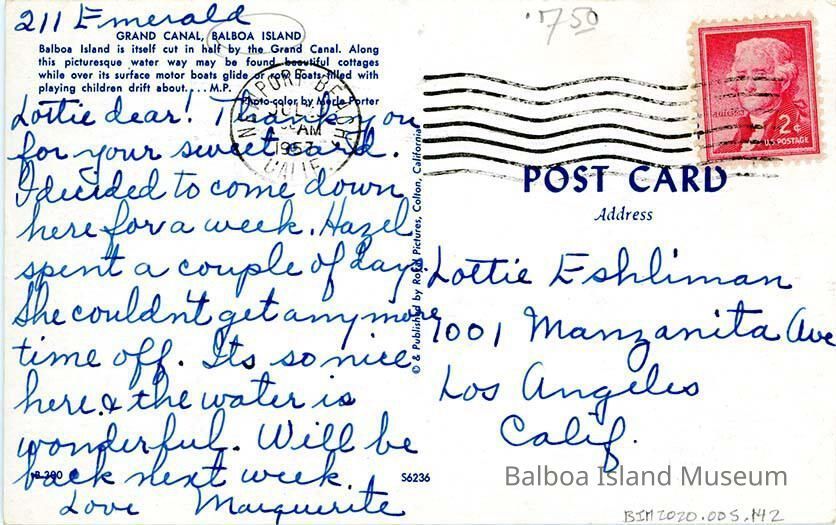 211 Emerald
GRAND CANAL, BALBOA ISLAND
Balboa Island is itself cut in half by the Grand Canal. Along
this picturesque water way may be found beautiful cottages
while over its surface motor boats glide or row boats filled with
playing children drift about.... M.P.
Photo-color by Merle Porter
Lottie dear! Thank you
for your sweet card.
I decided to come down
here for a week. Hazel
spent a couple of days.
She couldn't get any more
time off. Its so nice
here & the water is
wonderful. Will be
back next week.
Love Marguerite
7.50
NEWPORT BEACH
AM
1957
CALIF.
2¢
U.S. POSTAGE
POST CARD
Address
Lottie Eshliman
1001 Manzanita Ave
Los Angeles
Calif.
© & Published by Royal Pictures, Colton, California
S6236
Balboa Island Museum
BIM2020.005.142